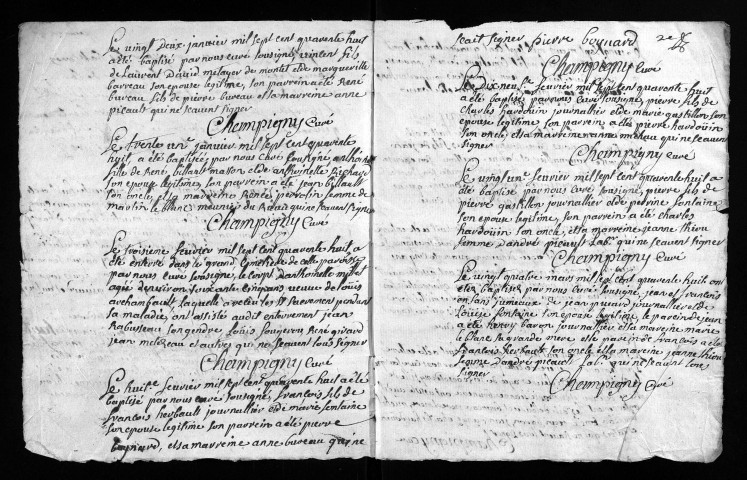 Le vingt deux janvier mil sept cent quarente huit
a été baptisé par nous curé sousigné, vincent fils
de Laurent David metayer de montet et de marguerite
barreau son epouse legitime, son parrein a été René
bureau fils de pierre bureau et sa marreine anne
picault qui ne sçauent signer
Champigny Curé
Le trente unᵉ janvier mil sept cent quarente
huit, a été baptisée par nous Curé sousigné,
fille de René billault et de anthoinette Richard
son epouse legitime, son parrein a été jean billault
son oncle, et sa marreine Renée perrotin femme de
martin le blanc meunier du qui ne sçauent signer
Champigny Curé
Le troisieme feurier mil sept cent quarente huit a
été enterré dans le grand cymetiere de cette paroisse
par nous curé sousigné, le corps d'anthoinette
agée d'enuiron soixante cinq ans veuue de Loüis
archambault laquelle a receu les Sᵗˢ sacrements pendant
sa maladie, ont assisté audit enterrement jean
Rabusseau son gendre Loüis René girard
jean et autres qui ne sçauent tous signer
Champigny Curé
Le huitᵉ feurier mil sept cent quarente huit a été
baptisé par nous curé sousigné, françois fils de
francois herbault journallier et de marie fontaine
son epouse legitime son parrein a été pierre
boynard, et sa marreine anne bureau qui ne
scait signer pierre boynard
Champigny Curé
Le dix neuᶠᵉ feurier mil sept cent quarente huit
a été baptisé par nous Curé sousigné, pierre fils de
charles hardoüin journallier et de marie gastillon son
epouse legitime, son parrein a été pierre hardoüin
son oncle, et sa marreine anne qui ne sçauent
signer
Champigny Curé
Le vingt unᵉ feurier mil sept cent quarente huit a
été baptisé par nous Curé sousigné, pierre fils de
pierre gastillon journallier et de perrine fontaine,
son epouse legitime, son parrein a été charles
hardoüin son oncle, et sa marreine jeanne thiou
femme d'andré picault Labʳ qui ne sçauent signer
Champigny Curé
Le vingt quatre mars mil sept cent quarente huit ont
été baptisés par nous Curé sousigné, jean et francois
jumeaux de jean picard journallier et de
Louise fontaine son epouse legitime, le parein de jean
a été henry baron journallier et sa mareine marie
le blanc sa grande mere et le parein de francois a été
francois herbault son oncle, et sa mareine jeanne thiou
femme d'andré picault qui ne sçauent tous
signer
Champigny Curé